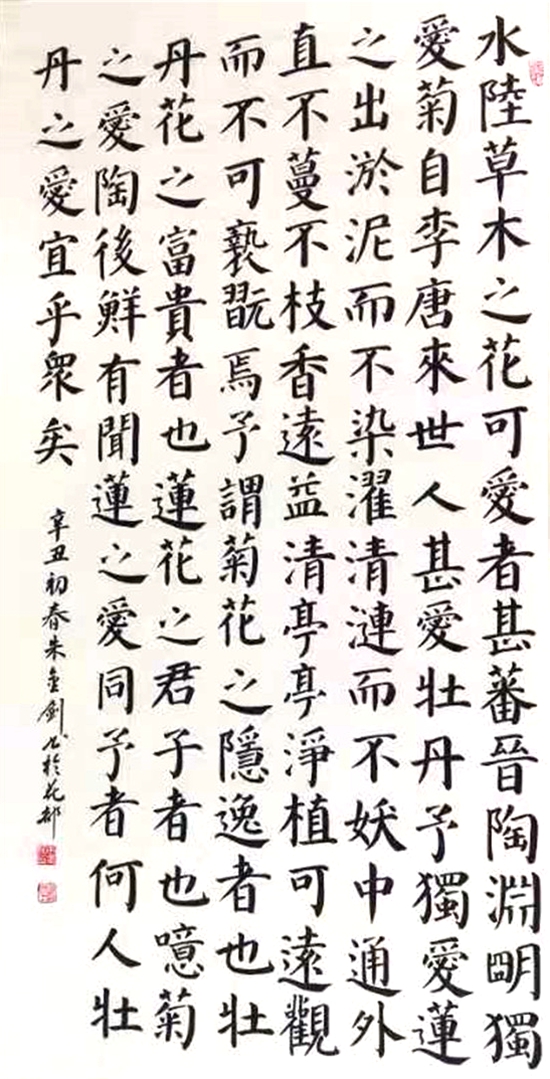 水陸草木之花可愛者甚蕃晉陶淵明獨
愛菊自李唐來世人甚愛牡丹予獨愛蓮
之出淤泥而不染濯清漣而不妖中通外
直不蔓不枝香遠益清亭亭淨植可遠觀
而不可褻翫焉予謂菊花之隱逸者也牡
丹花之富貴者也蓮花之君子者也噫菊
之愛陶後鮮有聞蓮之愛同予者何人牡
丹之愛宜乎眾矣
辛丑初春朱金劍書於花都